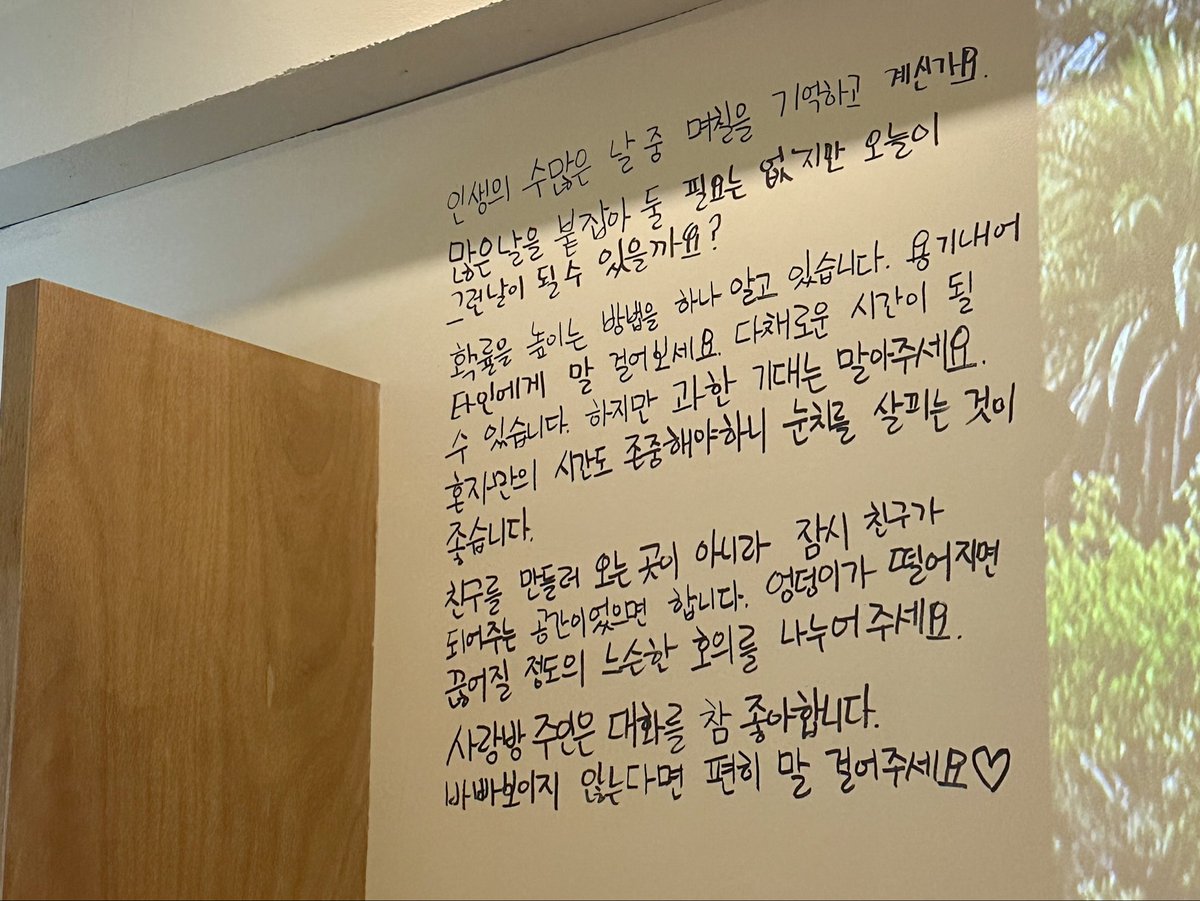 인생의 수많은 날 중 며칠을 기억하고 계신가요.
많은날을 붙잡아 둘 필요는 없지만 오늘이
그런날이 될 수 있을까요?
확률을 높이는 방법을 하나 알고 있습니다. 용기내어
타인에게 말 걸어보세요. 다채로운 시간이 될
수 있습니다. 하지만 과한 기대는 말아주세요.
혼자만의 시간도 존중해야하니 눈치를 살피는 것이
좋습니다.
친구를 만들러 오는 곳이 아니라 잠시 친구가
되어주는 공간이었으면 합니다. 엉덩이가 떨어지면
끊어질 정도의 느슨한 호의를 나누어주세요.
사랑방 주인은 대화를 참 좋아합니다.
바빠보이지 않는다면 편히 말 걸어주세요♡